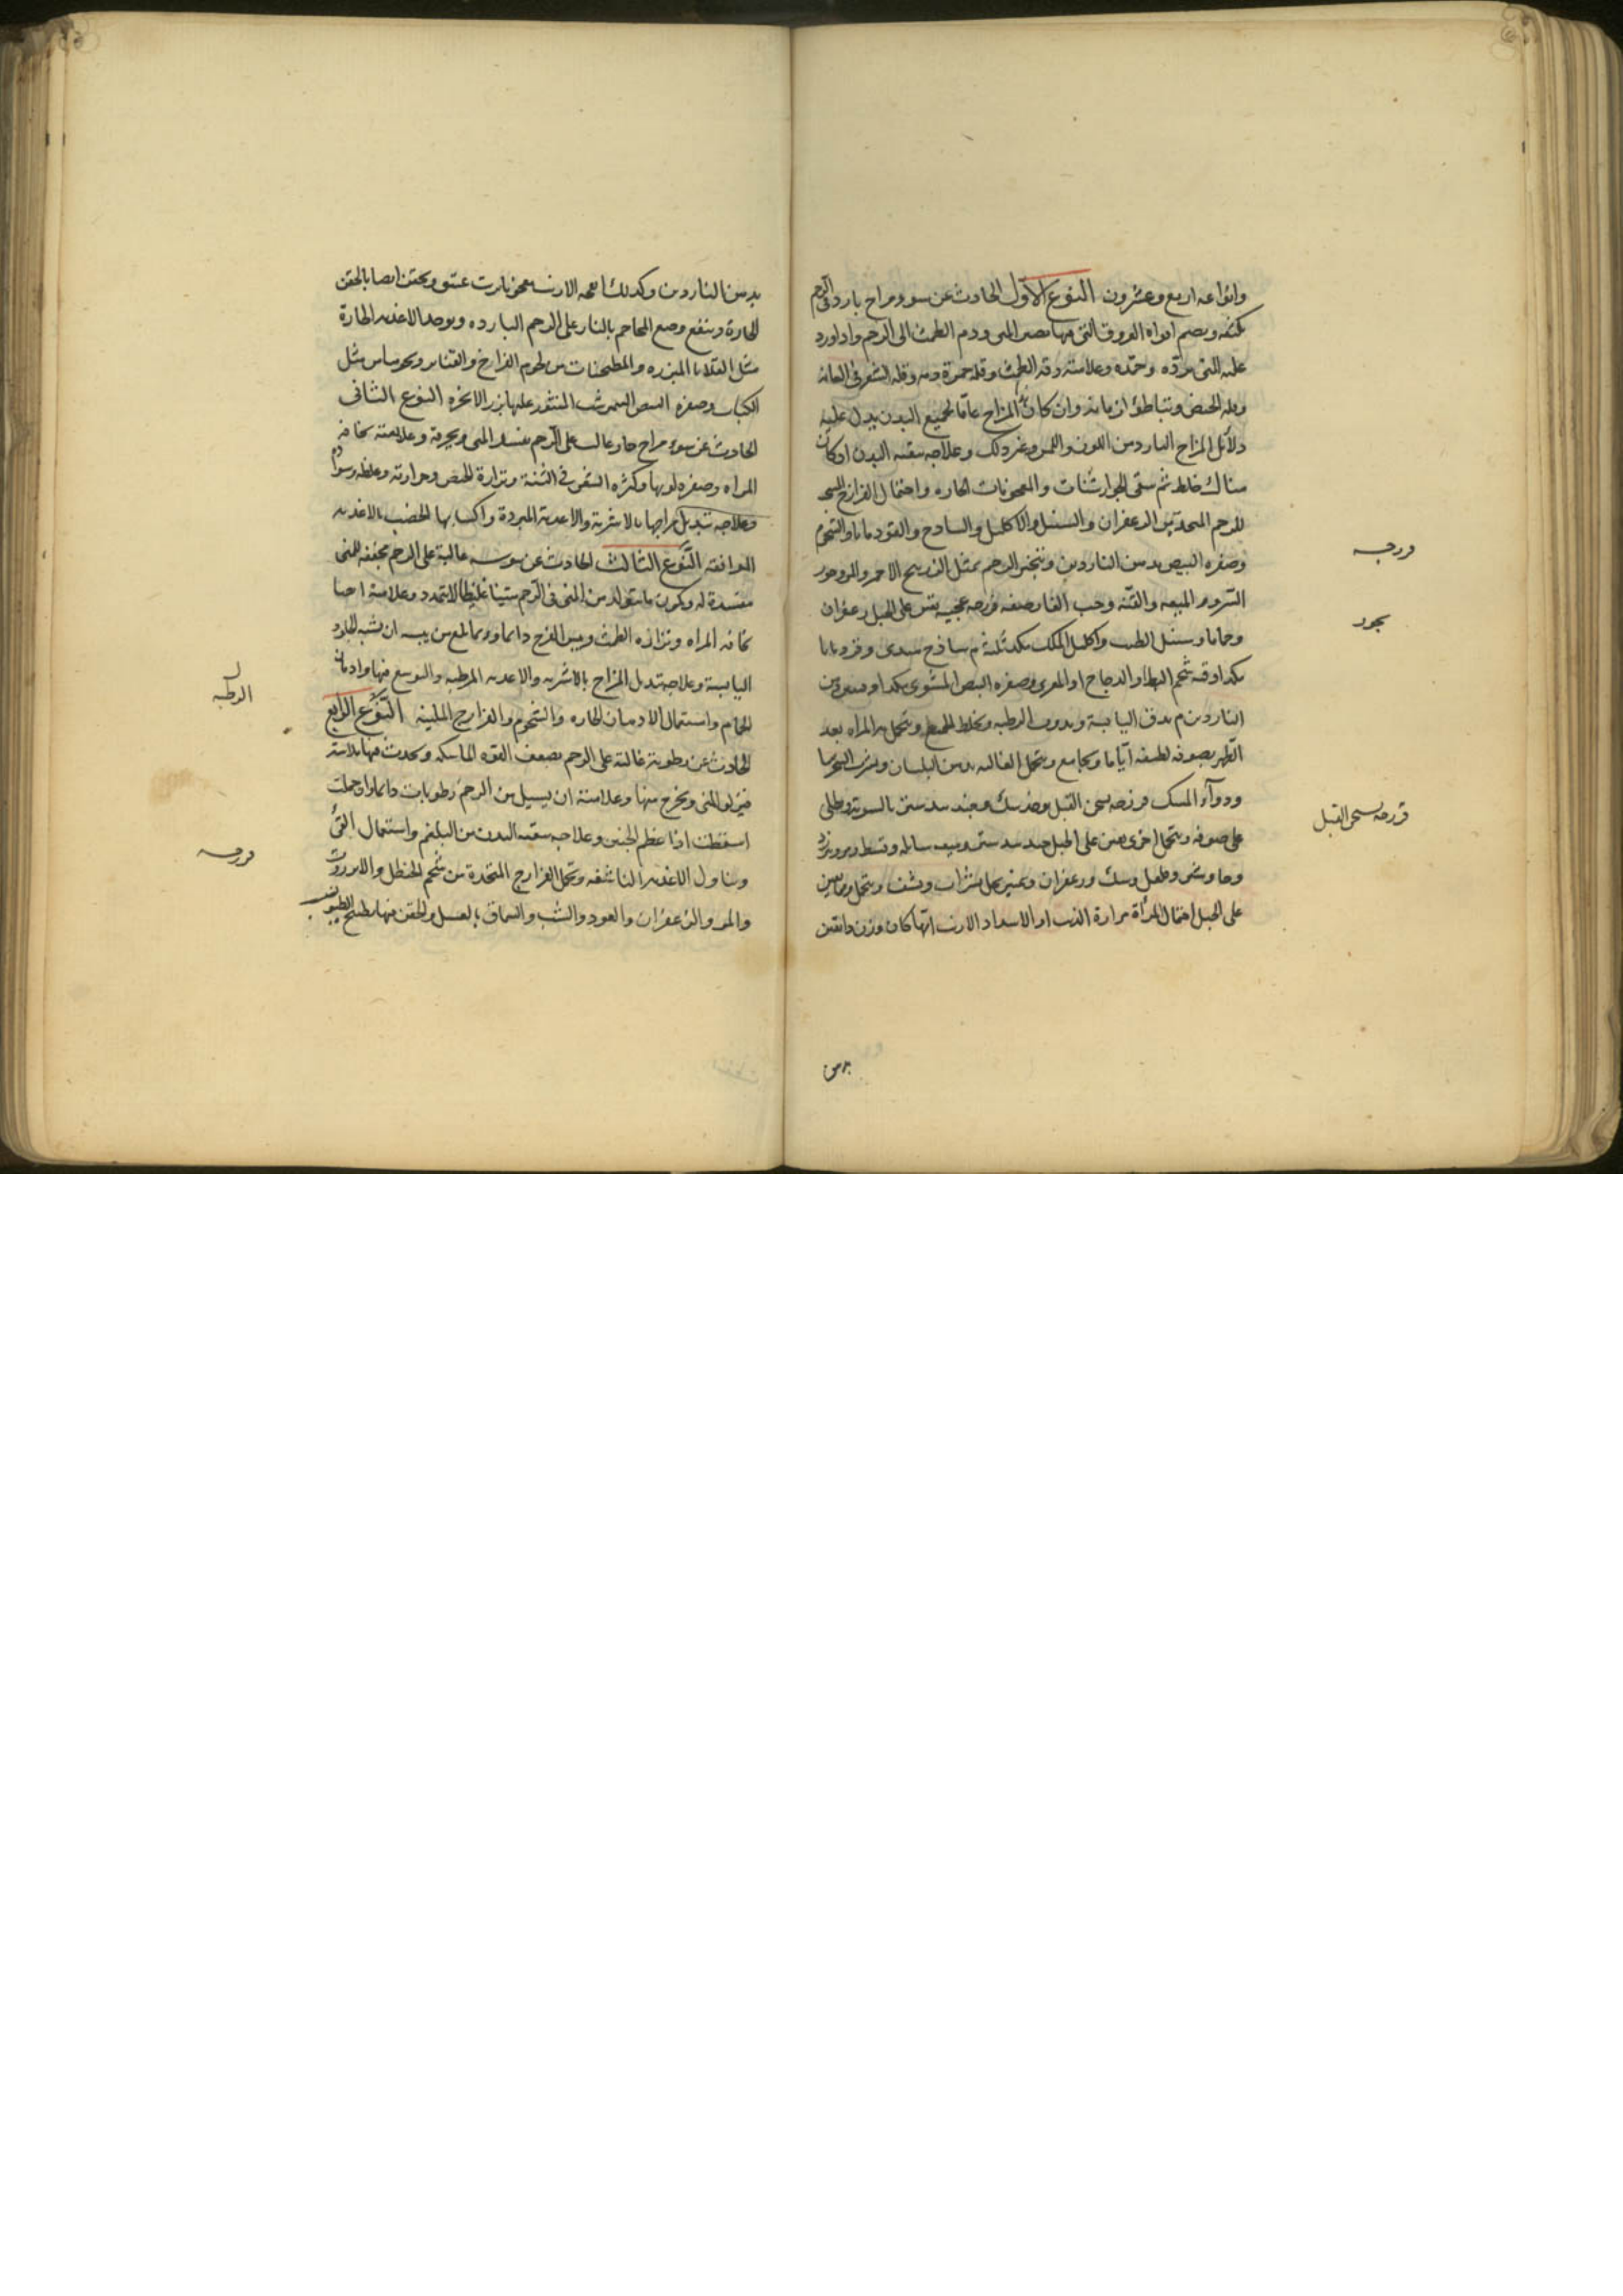 وانواعه اربع وعشرون النوع الاول الحادث عن سوء مزاج بارد في الرحم
يكثفه ويضم افواه العروق التي منها يصير المنى ودم الطمث الى الرحم واذا ورد
عليه المنى برده وجمده وعلامته رقة الطمث وقلة حمرة دمه وقلة الشعر في العانة
وقلة الحيض وتباطؤ ازمانه وان كان المزاج عاما لجميع البدن يدل عليه
دلائل المزاج البارد من اللون واللمس وغير ذلك وعلاجه تنقية البدن ان كان
هناك خلط ثم سقى الجوارشنات والمعجونات الحارة واحتمال الفرازج المسخنة
للرحم المتخذة من الزعفران والسنبل والاكليل والساذج والقردمانا والشحوم
وصفرة البيض ودهن الناردين وتبخير الرحم بمثل الزرنيخ الاحمر والمر وجوز
السرو والميعه والقنه وحب الغار صفه فرزجه عجيبه تعين على الحبل زعفران
وحماما وسنبل الطيب واكليل الملك مكد ثلثة م ساذج هندى وقردمانا
مكد اوقيه شحم البط او الدجاج او المعرى وصفره البيض المشوى مكد اوقيتين دهن
الناردين م يدق اليابسة ويذوب الرطبه ويخلط الجميع وتتحمل به المراه بعد
الطهر بصوفه لطيفه اياما ويجامع وتتحمل الغاليه بدهن البلسان وتشرب السجزنيا
ودواء المسك فرزجه تسخن القبل وسك وجندبيدستر بالسوية ويطلى
على صوفه وتتحمل اخرى تعين على الحبل جندبيدستر وميعه سائله وقسط ومر
وجاوشير وفلفل وسك وزعفران وعنبر يحل بشراب وتتحمل ومما يعين
على الحبل احتمال المرأة مرارة الذئب او الاسد او الارنب ايها كان وزن دانقين
بدهن
فرزجه
بخور
فرزجه تسخن القبل
بدهن الناردين وكذلك انفحه الارنب معجون بزيت عتيق وتحقن ايضا بالحقن
الحارة وينفع وضع المحاجم بالنار على الرحم الباردة ويوخذ الاغذيه الحارة
مثل القلايا المبزره والمطجنات من لحوم الفراخ والقنابر ونحوها مثل
الكباب وصفرة البيض النيمرشت المنثور عليها بزر الانجره النوع الثانى
الحادث عن سوء مزاج حار غالب على الرحم يفسد المنى ويحرقه وعلامته نحافة
المراه وصفرة لونها وكثرة الشعر في الثنة ونزارة الحيض وحرارته وغلظه وسواده
وعلاجه تبديل مزاجها بالاشربة والاغذية المبردة واكسابها الخصب بالاغذيه
الموافقه النوع الثالث الحادث عن يبوسه غالبة على الرحم مجففه للمنى
مفسدة له ويكون ما يتولد من المنى في الرحم متينا غليظا لا يتمدد وعلامته
نحافه المراه ونزارة الطمث ويبس الفرج دائما وربما بلغ من يبسه ان يشبه الجلود
اليابسة وعلاجه تبديل المزاج بالاشربه والاغذيه المرطبه والتوسع فيها وادمان
الحمام واستعمال الادهان الحاره والشحوم والفرازج الملينة النوع الرابع
الحادث عن رطوبة غالبة على الرحم يضعف القوه الماسكه ويحدث فيها ملاسه
فيزلق المنى ويخرج منها وعلامته ان يسيل من الرحم رطوبات دائما واذا حملت
اسقطت اذا عظم الجنين وعلاجه تنقيه البدن من البلغم واستعمال القئ
وتناول الاغذيه الناشفه وتحمل الفرازج المتخذة من شحم الحنظل والانزروت
والمر والزعفران والعود والشب والسماق بالعسل والحقن فيها بطبيخ الطيوب
الرطبه
فرزجه